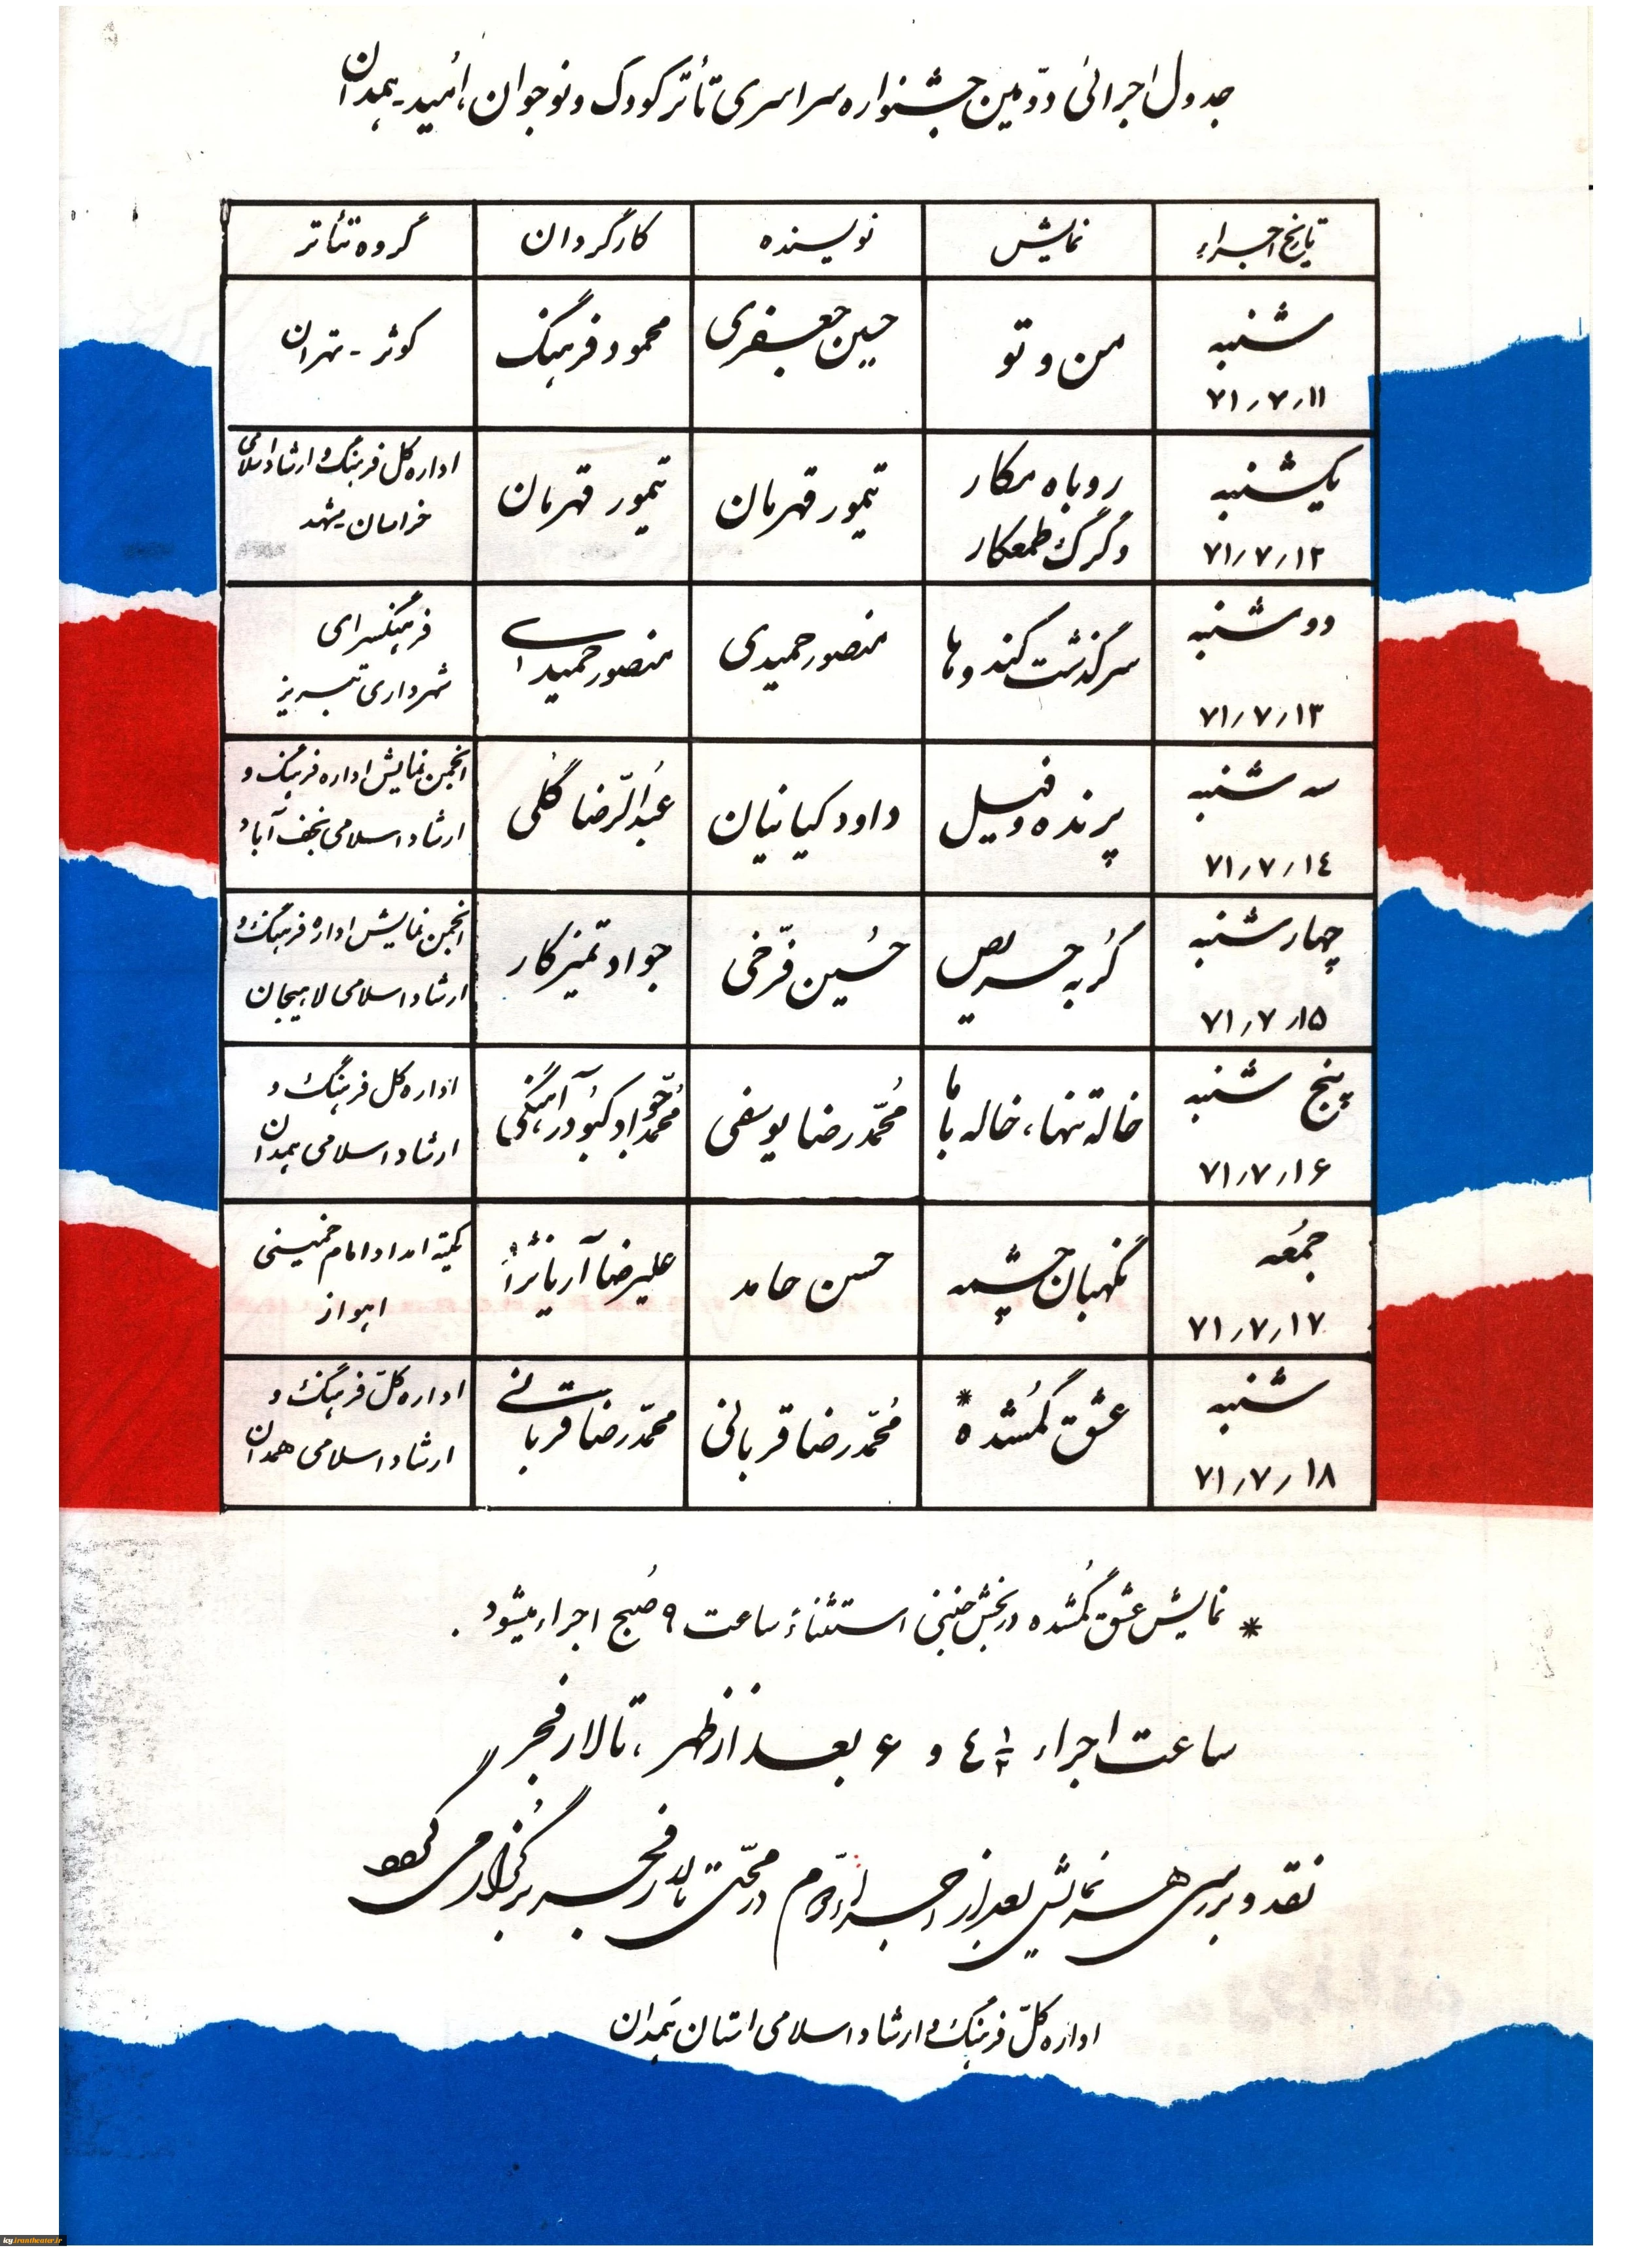 جدول اجرائی دوّمین جشنواره سراسری تأتر کودک و نوجوان، اُمید - همدان
تاریخ اجراء
نمایش
نویسنده
کارگردان
گروه تئاتر
شنبه
۷۱٫۷٫۱۱
من و تو
حسین جعفری
محمود فرهنگ
کوثر - تهران
یکشنبه
۷۱٫۷٫۱۲
روباه مکار
و گرگ طمعکار
تیمور قهرمان
تیمور قهرمان
اداره کل فرهنگ و ارشاد اسلامی
خراسان مشهد
دوشنبه
۷۱٫۷٫۱۳
سرگذشت کندوها
منصور حمیدی
منصور حمیدی
فرهنگسرای
شهرداری تبریز
سه شنبه
۷۱٫۷٫۱٤
پرنده و فیل
داود کیانیان
عبدالرّضا گلی
انجمن نمایش اداره فرهنگ و
ارشاد اسلامی نجف آباد
چهارشنبه
۷۱٫۷٫۱۵
گربه حریص
حُسین فرّخی
جواد تمیزکار
انجمن نمایش اداره فرهنگ و
ارشاد اسلامی لاهیجان
پنج شنبه
۷۱٫۷٫۱۶
خاله تنها، خاله با ما
مُحمّدرضا یوسفی
مُحمّدجواد کبودرآهنگی
اداره کل فرهنگ و
ارشاد اسلامی همدان
جُمعه
۷۱٫۷٫۱۷
نگهبان چشمه
حسن حامد
علیرضا آریانژاد
کمیته امداد امام خمینی
اهواز
شنبه
۷۱٫۷٫۱۸
عشق گمُشده *
مُحمّدرضا قربانی
محمّدرضا قربانی
اداره کلّ فرهنگ و
ارشاد اسلامی همدان
* نمایش عشق گمُشده در بخش جنبی استثناءً ساعت ۹ صُبح اجراء میشود .
ساعت اجراء ٤ ۱/۲ و ۶ بعد از ظهر، تالار فجر
نقد و بررسی هر نمایش بعد از اجراء دوّم در محلّ تالار فجر برگُزار می گردد
اداره کلّ فرهنگ و ارشاد اسلامی استان همدان
icy.irantheater.ir